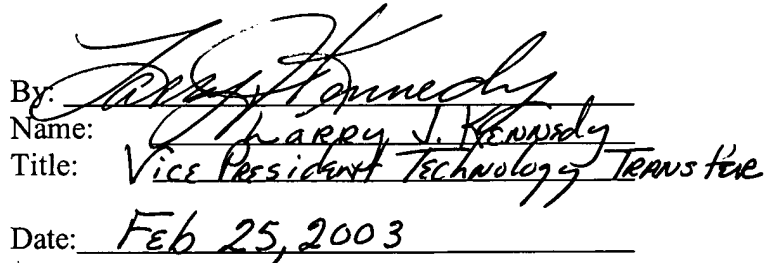 By: Larry J Kennedy
Name: Larry J. Kennedy
Title: Vice President Technology Transfer
Date: Feb 25, 2003